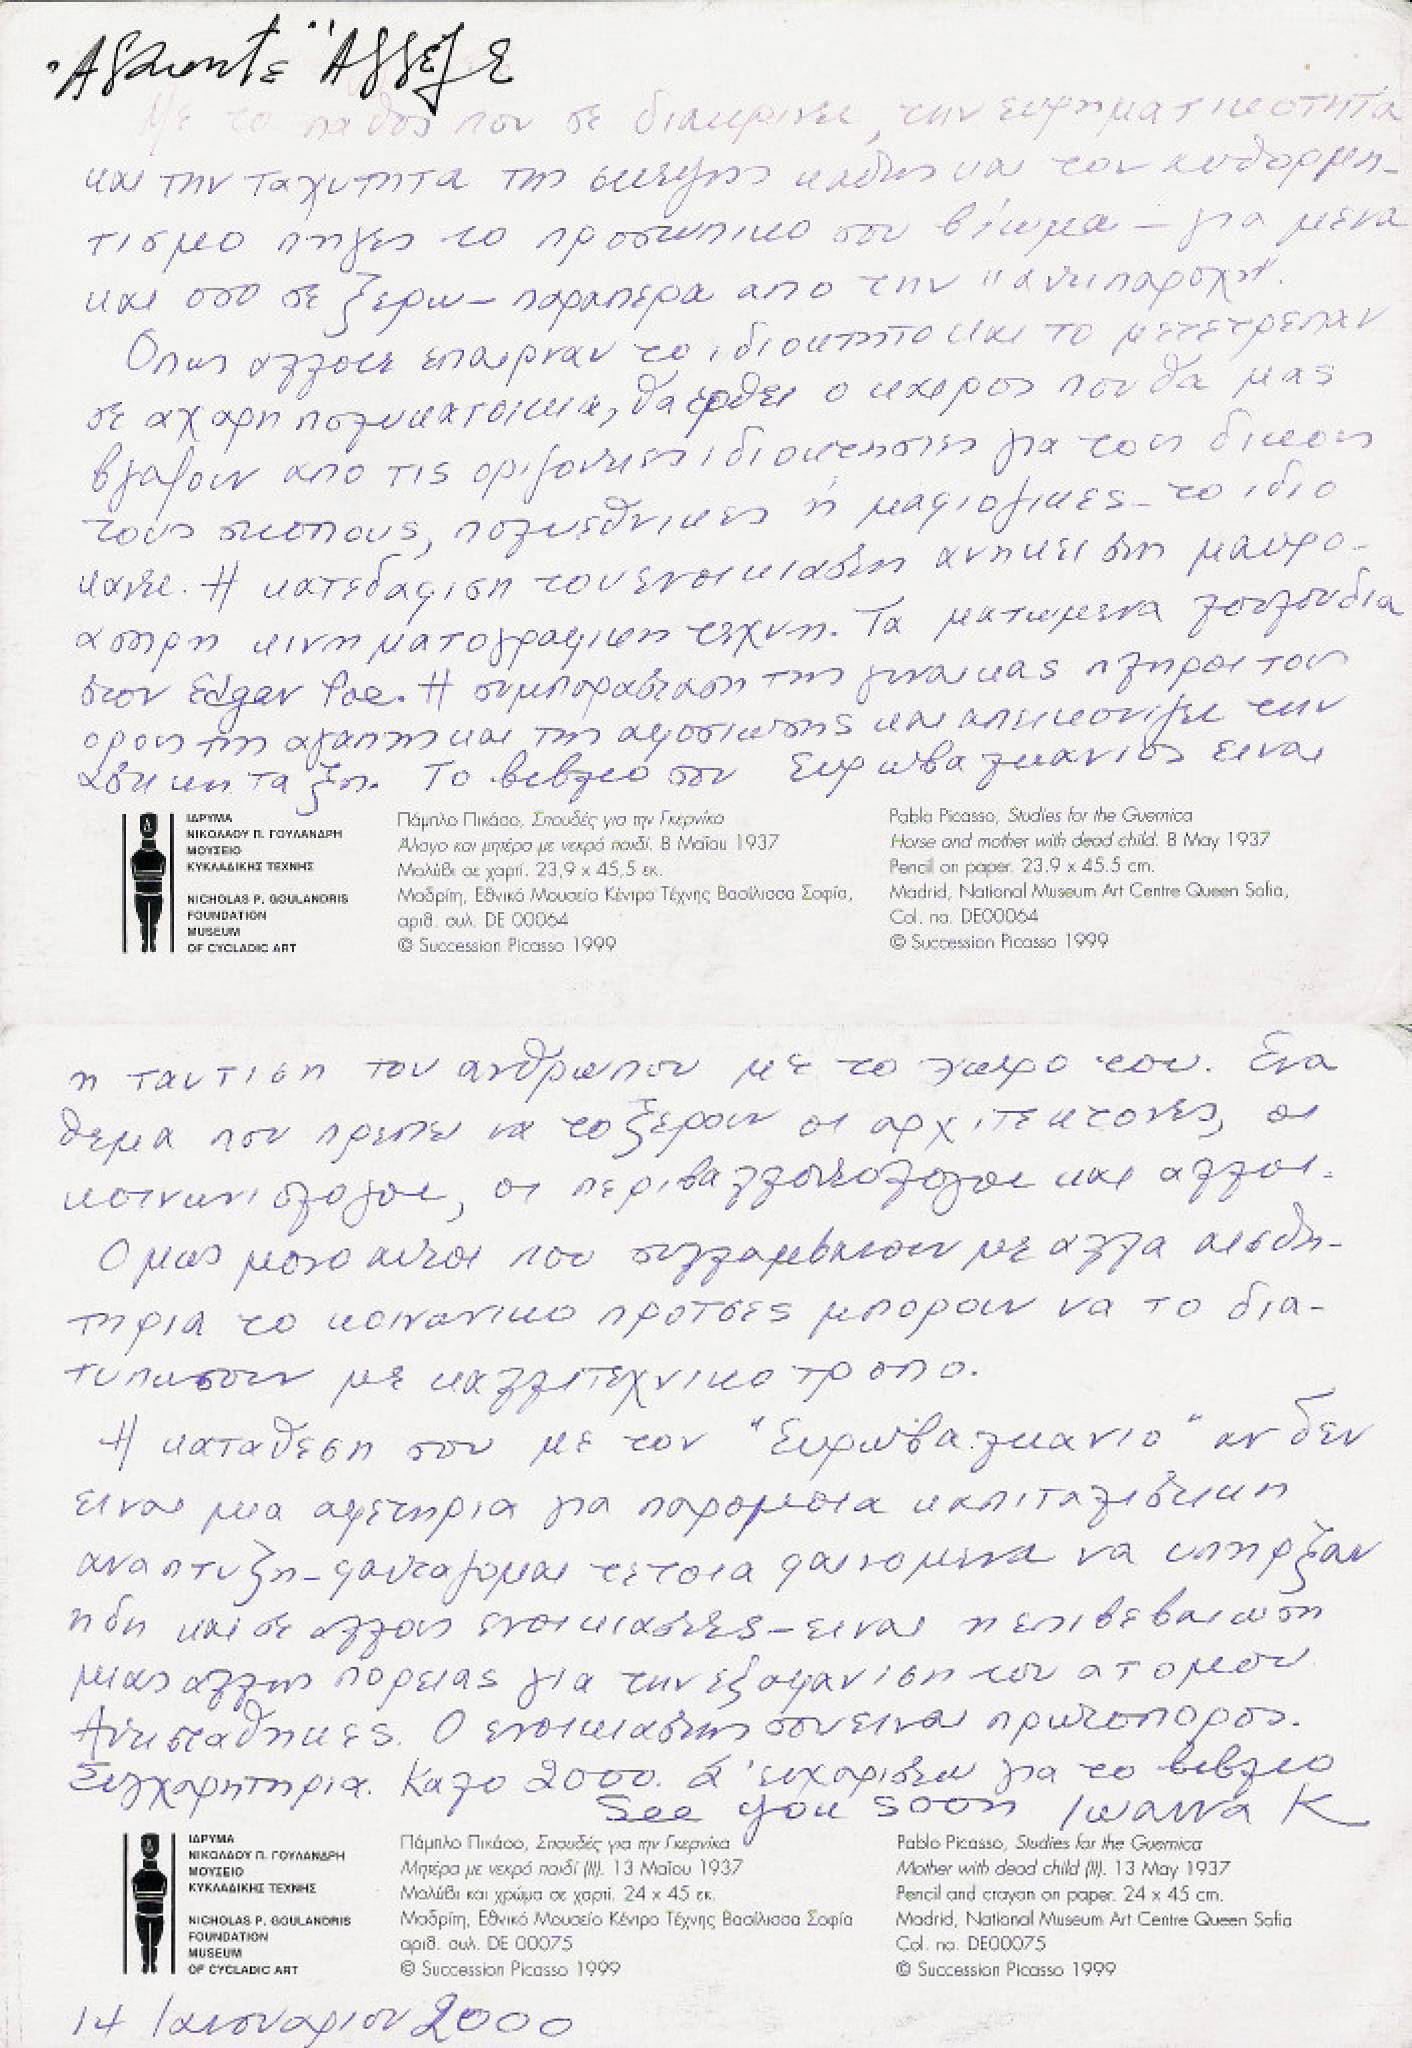 Αγαπητέ Άγγελε
Με το παθος που σε διακρινει, την ευρηματικοτητα
και την ταχυτητα της σκεψης καθως και τον αυθορμη-
τισμο πηγες το προσωπικο σου βίωμα – για μενα
και οσο σε ξερω – παραπερα απο την "αντιπαροχη".
Οπως αλλοτε επαιρναν το ιδιοκτητο και το μετετρεπαν
σε αχαρη πολυκατοικια, θα ερθει ο καιρος που θα μας
βγαζουν απο τις οριζοντιες ιδιοκτησιες για τους δικους
τους σκοπους, πολυεθνικες ή μαφιοζικες – το ιδιο
κανει. Η κατεδαφιση του ενοικιαστη ανηκει στη μαυρο-
ασπρη κινηματογραφικη τεχνη. Τα ματωμενα λουλουδια
στον Edgar Poe. Η συμπαρασταση της γυναικας πληροι τους
ορους της αγαπης και της αφοσιωσης και απεικονιζει την
αστικη ταξη. Το βιβλιο σου Ευρωβαλκανιος ειναι
ΙΔΡΥΜΑ
ΝΙΚΟΛΑΟΥ Π. ΓΟΥΛΑΝΔΡΗ
ΜΟΥΣΕΙΟ
ΚΥΚΛΑΔΙΚΗΣ ΤΕΧΝΗΣ
NICHOLAS P. GOULANDRIS
FOUNDATION
MUSEUM
OF CYCLADIC ART
Πάμπλο Πικάσο, Σπουδές για την Γκερνίκα
Άλογο και μητέρα με νεκρό παιδί. 8 Μαΐου 1937
Μολύβι σε χαρτί. 23,9 x 45,5 εκ.
Μαδρίτη, Εθνικό Μουσείο Κέντρο Τέχνης Βασίλισσα Σοφία,
αριθ. συλ. DE 00064
© Succession Picasso 1999
Pablo Picasso, Studies for the Guernica
Horse and mother with dead child. 8 May 1937
Pencil on paper. 23.9 x 45.5 cm.
Madrid, National Museum Art Centre Queen Sofia,
Col. no. DE00064
© Succession Picasso 1999
η ταυτιση του ανθρωπου με το χωρο του. Ενα
θεμα που πρεπει να το ξερουν οι αρχιτεκτονες, οι
κοινωνιολογοι, οι περιβαλλοντολογοι και αλλοι.
Ομως μονο αυτοι που συλλαμβανουν με αλλα αισθη-
τηρια το κοινωνικο προτσες μπορουν να το δια-
τυπωσουν με καλλιτεχνικο τροπο.
Η καταθεση σου με τον "Ευρωβαλκανιο" αν δεν
ειναι μια αφετηρια για παρομοια καπιταλιστικη
αναπτυξη – φανταζομαι τετοια φαινομενα να υπηρξαν
ηδη και σε αλλους ενοικιαστες – ειναι η επιβεβαιωση
μιας αλλης πορειας για την εξαφανιση του ατομου
Αντισταθηκες. Ο ενοικιαστης σου ειναι πρωτοπορος.
Συγχαρητηρια. Καλο 2000. Σ' ευχαριστω για το βιβλιο
See you soon Ιωαννα Κ
ΙΔΡΥΜΑ
ΝΙΚΟΛΑΟΥ Π. ΓΟΥΛΑΝΔΡΗ
ΜΟΥΣΕΙΟ
ΚΥΚΛΑΔΙΚΗΣ ΤΕΧΝΗΣ
NICHOLAS P. GOULANDRIS
FOUNDATION
MUSEUM
OF CYCLADIC ART
Πάμπλο Πικάσο, Σπουδές για την Γκερνίκα
Μητέρα με νεκρό παιδί (II). 13 Μαΐου 1937
Μολύβι και χρώμα σε χαρτί. 24 x 45 εκ.
Μαδρίτη, Εθνικό Μουσείο Κέντρο Τέχνης Βασίλισσα Σοφία
αριθ. συλ. DE 00075
© Succession Picasso 1999
Pablo Picasso, Studies for the Guernica
Mother with dead child (II). 13 May 1937
Pencil and crayon on paper. 24 x 45 cm.
Madrid, National Museum Art Centre Queen Sofia
Col. no. DE00075
© Succession Picasso 1999
14 Ιανουαριου 2000